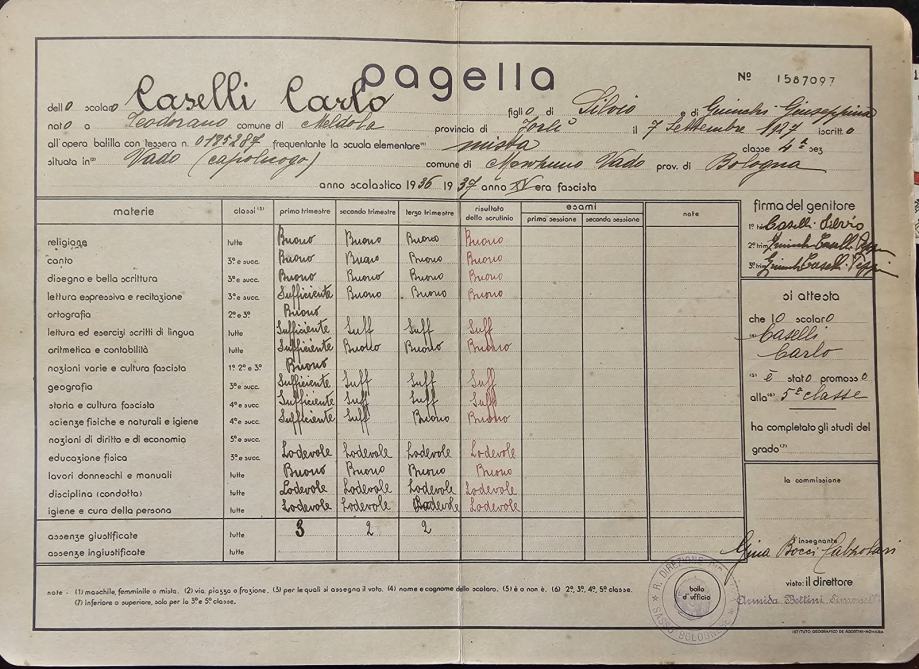 pagella
Nº 1587097
dello scolaro Caselli Carlo figlio di Silvio e di Giuseppina
nato a Teodorano comune di Meldola provincia di Forlì il 7 Settembre 1927 iscritto
all'opera balilla con tessera n. 0185287 frequentante la scuola elementare⁽¹⁾ mista classe 4ª sez
situata in⁽²⁾ Vado (capoluogo) comune di Vado prov. di Bologna
anno scolastico 1936 1937 anno XV era fascista
materie classi⁽³⁾ primo trimestre secondo trimestre terzo trimestre risultato dello scrutinio esami prima sessione seconda sessione note
religione tutte Buono Buono Buono Buono
canto 3ª e succ. Buono Buono Buono Buono
disegno e bella scrittura 3ª e succ. Buono Buono Buono Buono
lettura espressiva e recitazione 3ª e succ. Sufficiente Buono Buono Buono
ortografia 2ª e 3ª Buono
lettura ed esercizi scritti di lingua tutte Sufficiente Suff Suff Suff
aritmetica e contabilità tutte Sufficiente Buono Buono Buono
nozioni varie e cultura fascista 1ª 2ª e 3ª Buono
geografia 3ª e succ. Sufficiente Suff Suff Suff
storia e cultura fascista 4ª e succ. Sufficiente Suff Suff Suff
scienze fisiche e naturali e igiene 4ª e succ. Sufficiente Suff Buono Buono
nozioni di diritto e di economia 5ª e succ.
educazione fisica 3ª e succ. Lodevole Lodevole Lodevole Lodevole
lavori donneschi e manuali tutte Buono Buono Buono Buono
disciplina (condotta) tutte Lodevole Lodevole Lodevole Lodevole
igiene e cura della persona tutte Lodevole Lodevole Lodevole Lodevole
assenze giustificate tutte 3 2 2
assenze ingiustificate tutte
firma del genitore
1º trim Caselli Silvio
2º trim Caselli
3º trim Caselli
si attesta
che lo scolaro
⁽⁴⁾ Caselli
Carlo
⁽⁵⁾ è stato promosso
alla⁽⁶⁾ 5ª classe
ha completato gli studi del
grado⁽⁷⁾
la commissione
l'insegnante
Gina Bocci Calzolari
visto: il direttore
Armida Bettini Simonelli
bollo d'ufficio
note - (1) maschile, femminile o mista. (2) via, piazza o frazione. (3) per le quali si assegna il voto. (4) nome e cognome dello scolaro. (5) è o non è. (6) 2ª, 3ª, 4ª, 5ª classe.
(7) inferiore o superiore, solo per la 3ª e 5ª classe.
ISTITUTO GEOGRAFICO DE AGOSTINI-NOVARA